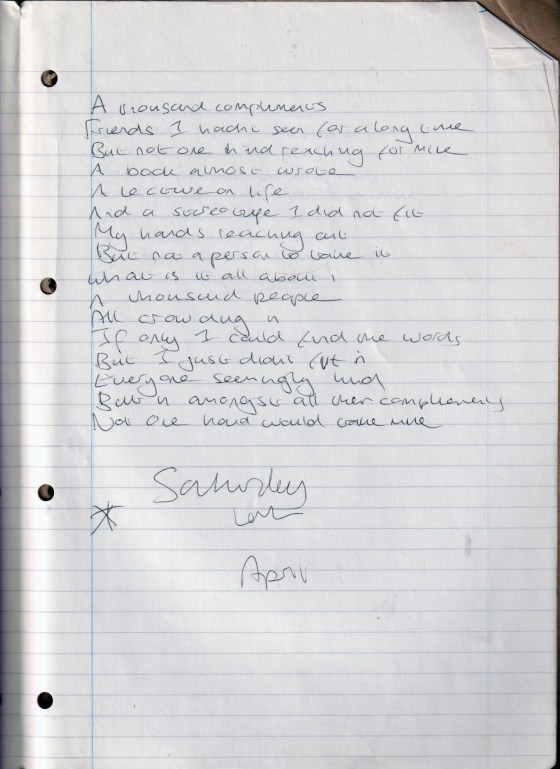 A thousand compliments
Friends I hadnt seen for a long time
But not one hand reaching for mine
A book almost wrote
A lecture on life
And a stereotype I did not fit
My hands reaching out
But not a person to take it
what is it all about,
A thousand people
All crowding in
If only I could find the words
But I just didnt fit in
Everyone seemingly kind
But in amongst all their compliments
Not One hand would take mine
Saturday
April